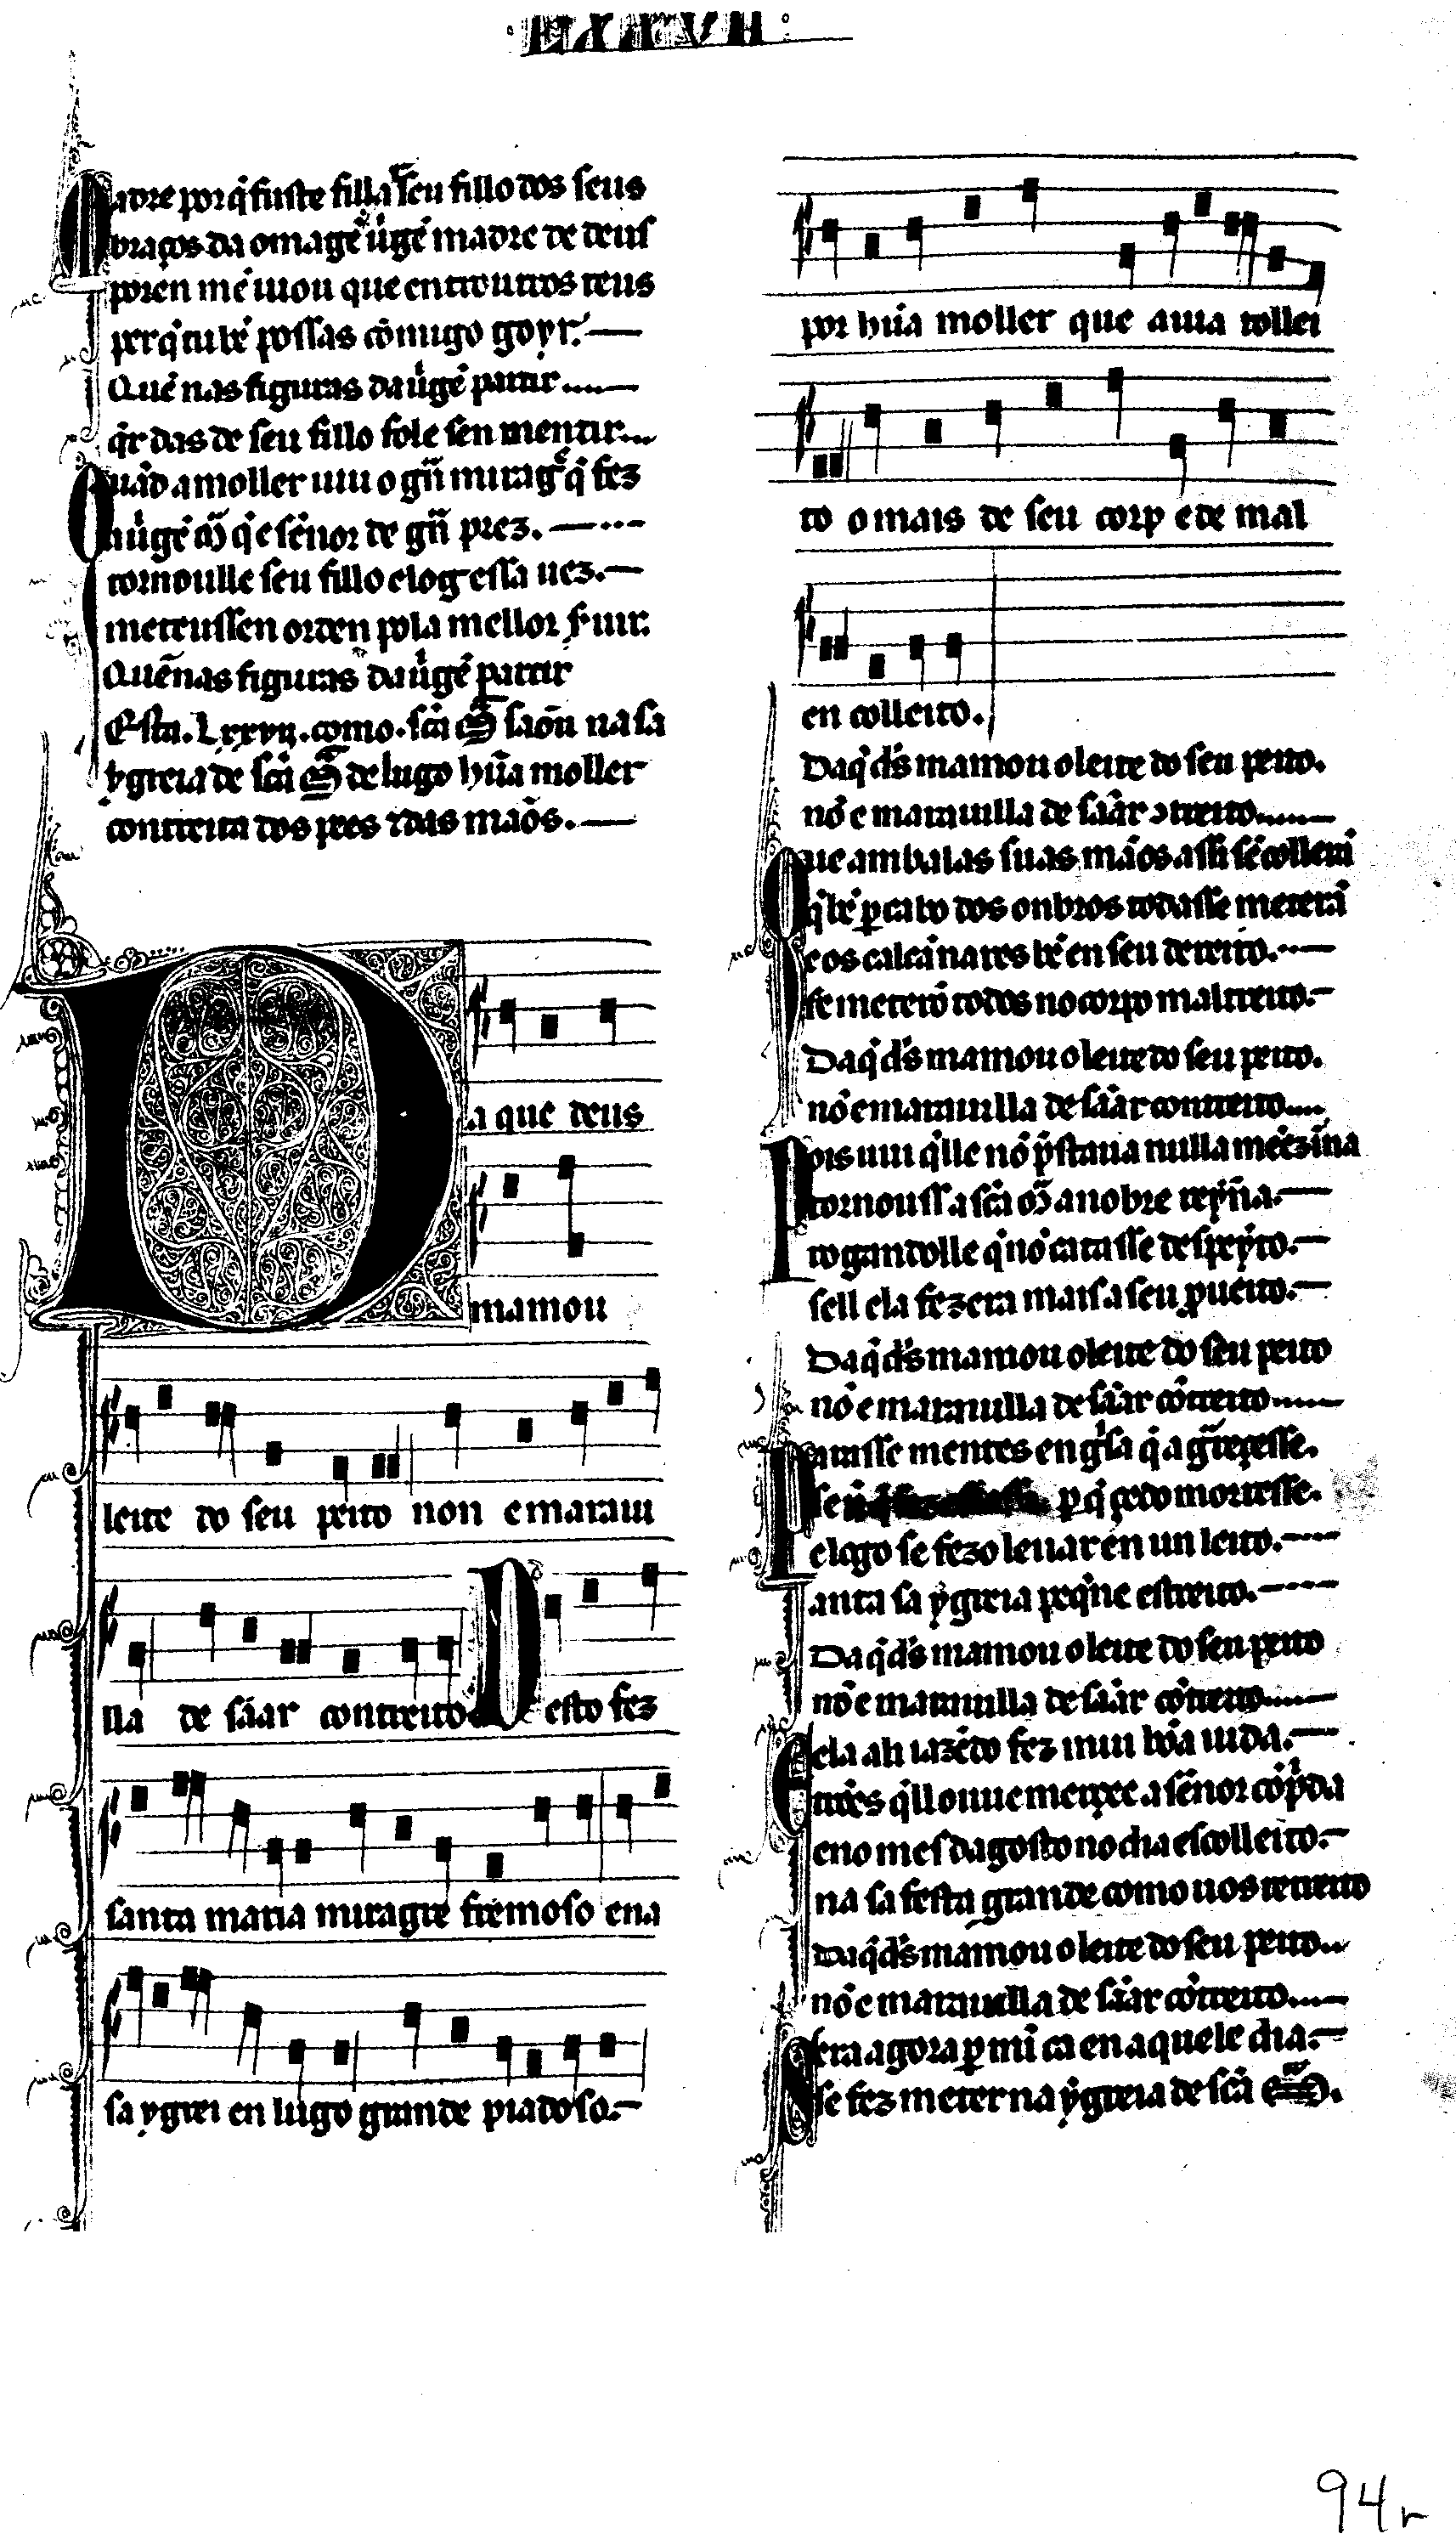 LXXVII
Madre por q̇ fuste filla seu fillo dos seus
braços da omagē ũgē madre de deus
poren mē uiou que entroutros reus
per q̇ tu bē possas cōmigo goyr.
Quē nas figuras da ũgē partir....
q̇r das de seu fillo fole sen mentir...
Quād a moller uiu o grã mirag̃ q̇ fez
a ũgē M̃ q̇ e sẽnor de grã prez.
tornoulle seu fillo e log essa uez.
meteussen orden pola mellor s̃uir.
Quẽ nas figuras da ũgē partir
Esta .Lxxvij. como .sc̃a M̃ sãou na sa
ygreia de sc̃a M̃ de lugo hũa moller
contreita dos pees ⁊ das mãos.
Da que deus
mamou
leite do seu peito non e marau
lla de sãar contreito Desto fez
santa maria miragre fremoso ena
sa ygrei en lugo grande piadoso.
por hũa moller que auia tollei
to o mais de seu corp e de mal
en colleito.
Daq̇ d̃s mamou o leite do seu peito.
nō e marauilla de sãar ɔtreito.....
Que ambalas suas mãos assi sē colleran
q̇ bē p cabo dos onbros todasse meteran
e os calcannares bē en seu dereito.
se meterō todos no corpo maltreito.
Daq̇ d̃s mamou o leite do seu peito.
nō e marauilla de sãar contreito....
Pois uiu q̇lle nō p̃staua nulla meezỹna
tornouss a sc̃a M̃ a nobre reỹna.
rogandolle q̇ nō catasse despeyto.
sell ela fezera mais a seu proueito.
Daq̇ d̃s mamou o leite do seu peito
nō e marauilla de sãar cōtreito.....
Parasse mentes en g̃sa q̇ a g̃reçesse.
se p q̇ çedo morresse.
e logo se fezo leuar en un leito.
anta sa ygreia peq̇ne estreito.
Daq̇ d̃s mamou o leite do seu peito
nō e marauilla de sãar cōtreito.....
E ela ali iazēdo fez mui bōa uida.
trões q̇ll ouue merçee a sẽnor cōp̃da
eno mes dagosto no dia escolleito.
na sa festa grande como uos retreito
Daq̇ d̃s mamou o leite do seu peito..
nō e marauilla de sãar cōtreito.....
Sera agora p mĩ ca en aquele dia.
se fez meter na ỹgreia de sc̃a M̃.
94r